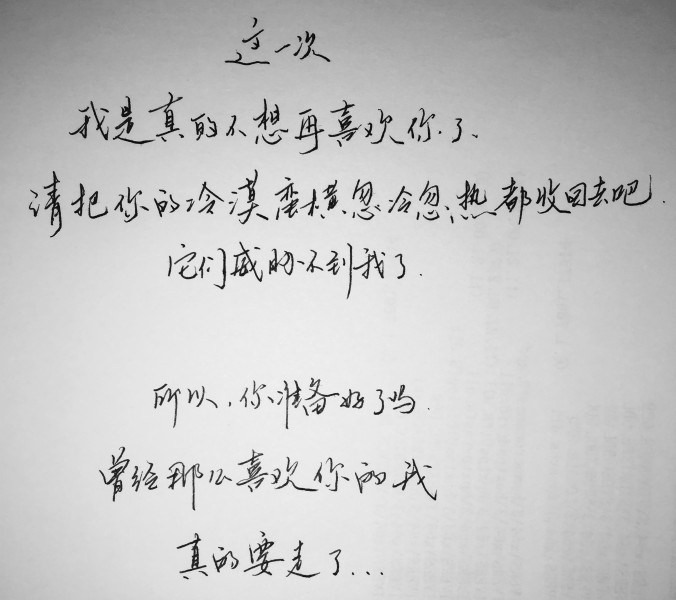 这一次
我是真的不想再喜欢你了.
请把你的冷漠蛮横忽冷忽热都收回去吧.
它们威胁不到我了.
所以,你准备好了吗.
曾经那么喜欢你的我
真的要走了...